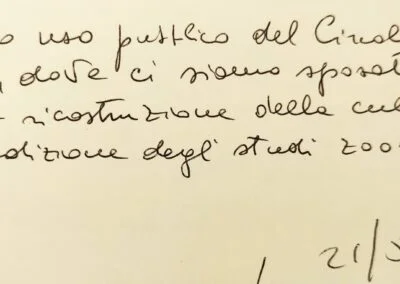 o uso pubblico del Circol
dove ci siamo sposat
ricostruzione della cul
adizione degli studi zoo
21/